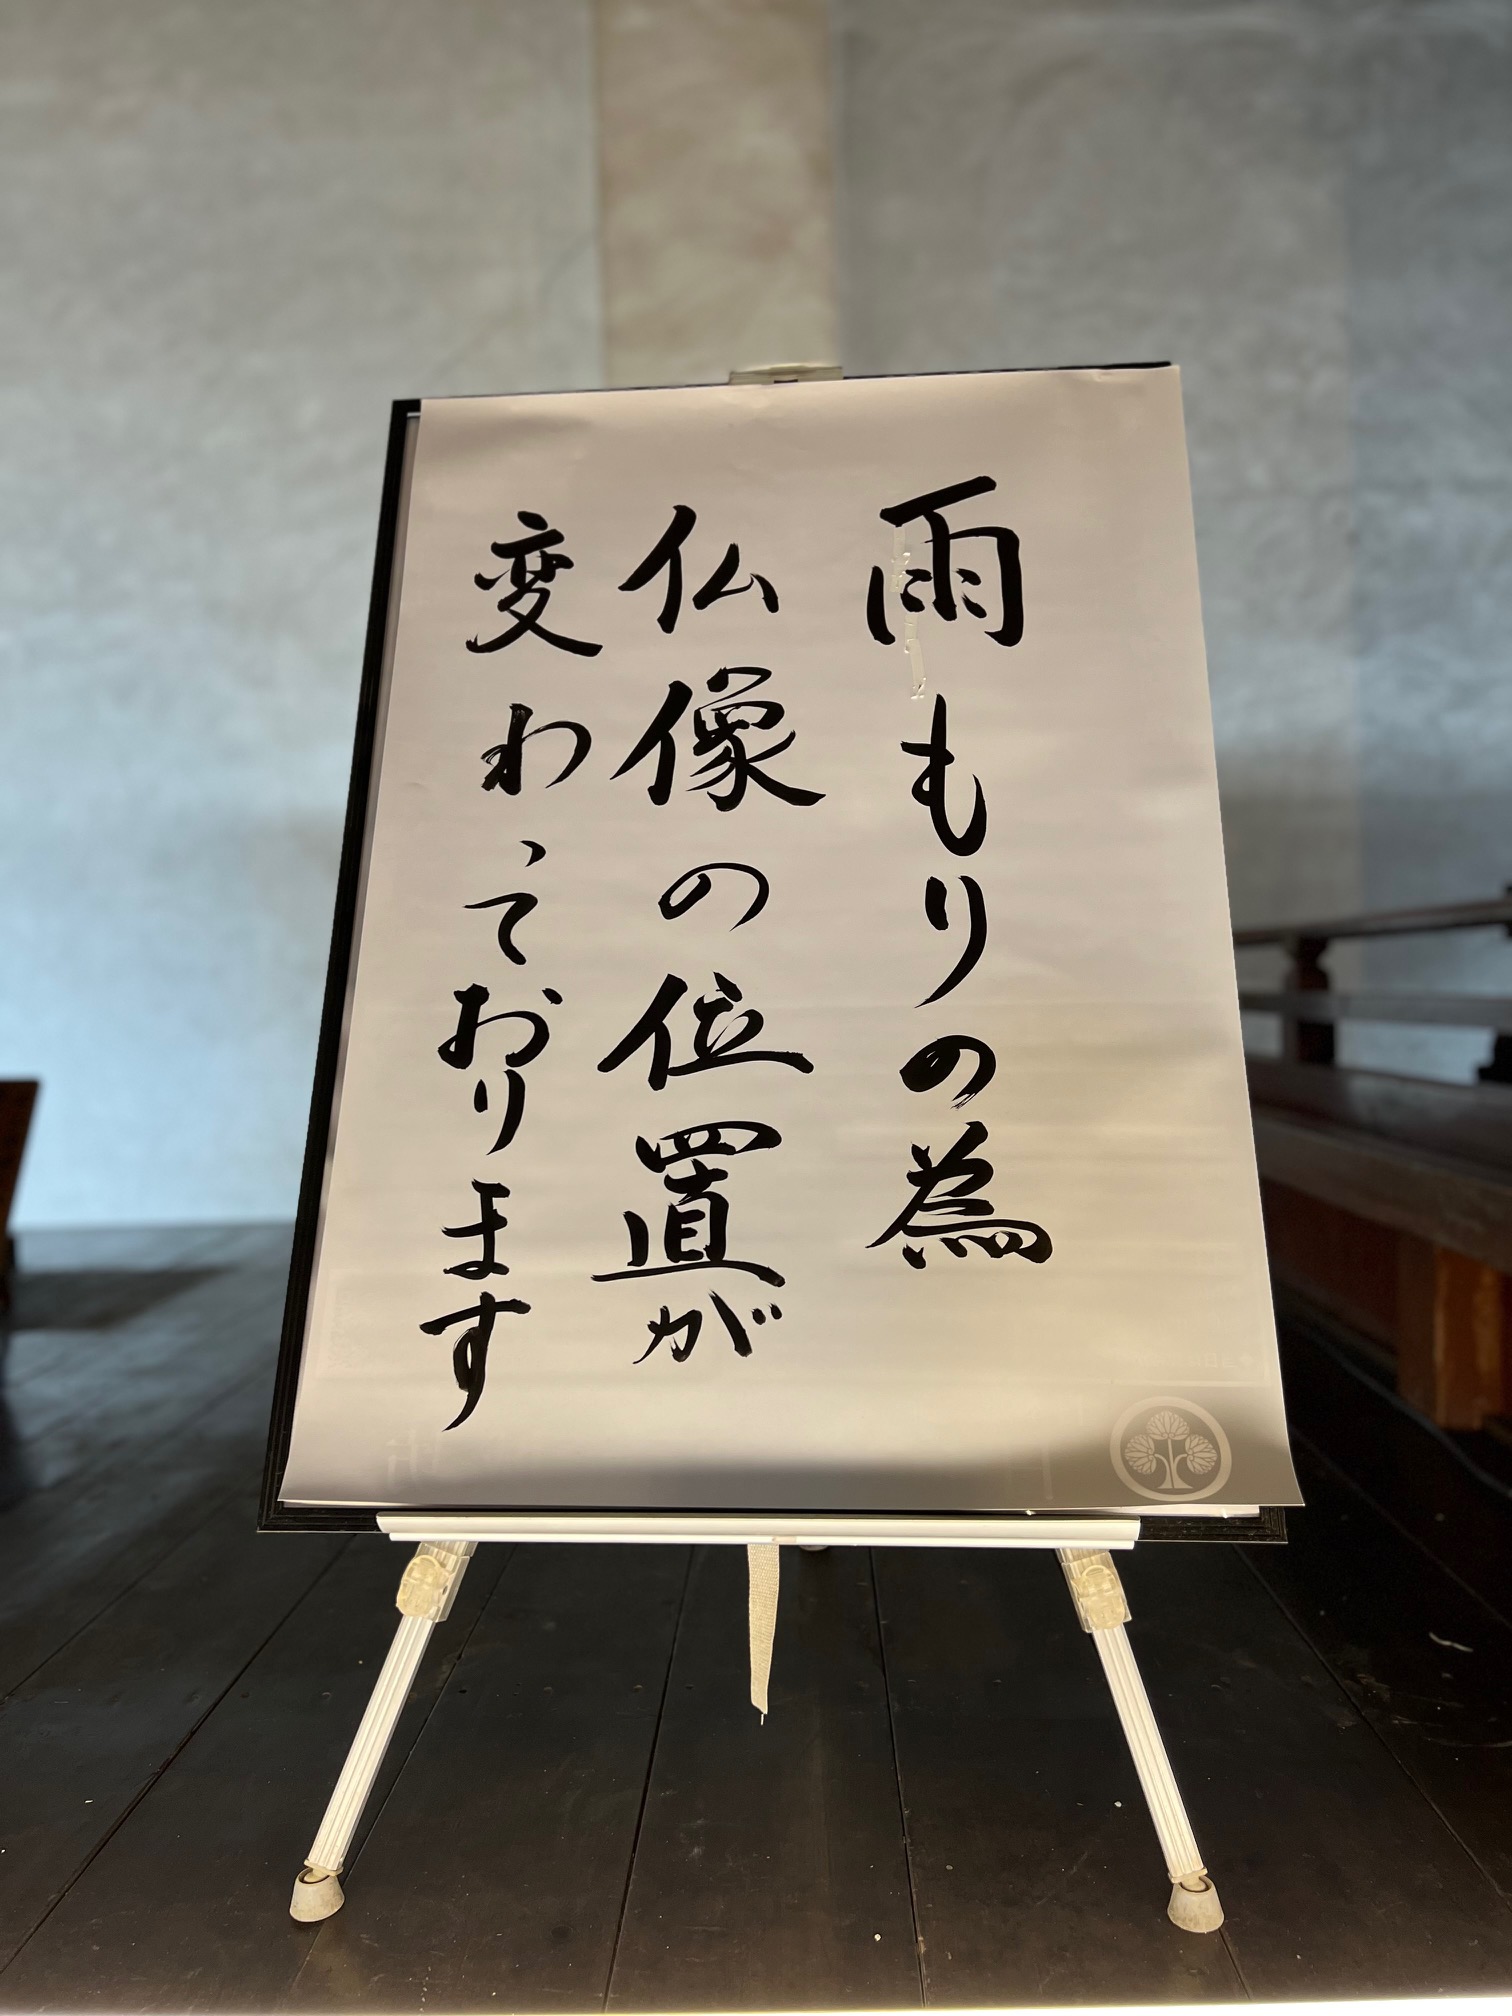 雨もりの為
仏像の位置が
変わっております